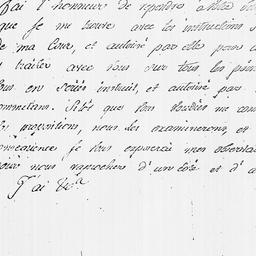 J'ai l'honneur de repondre à Votre
que je me trouve avec les instructions
de ma Cour, et autorisé par elle pour
traiter avec Vous sur tous les poin
Vous en etiés instruit, et autorisé par
Sitôt que Vous voudrés me com
propositions, nous les examinerons, et
je Vous exposerai mes observat
pour nous raprocher d'un côté et d'a
J'ai